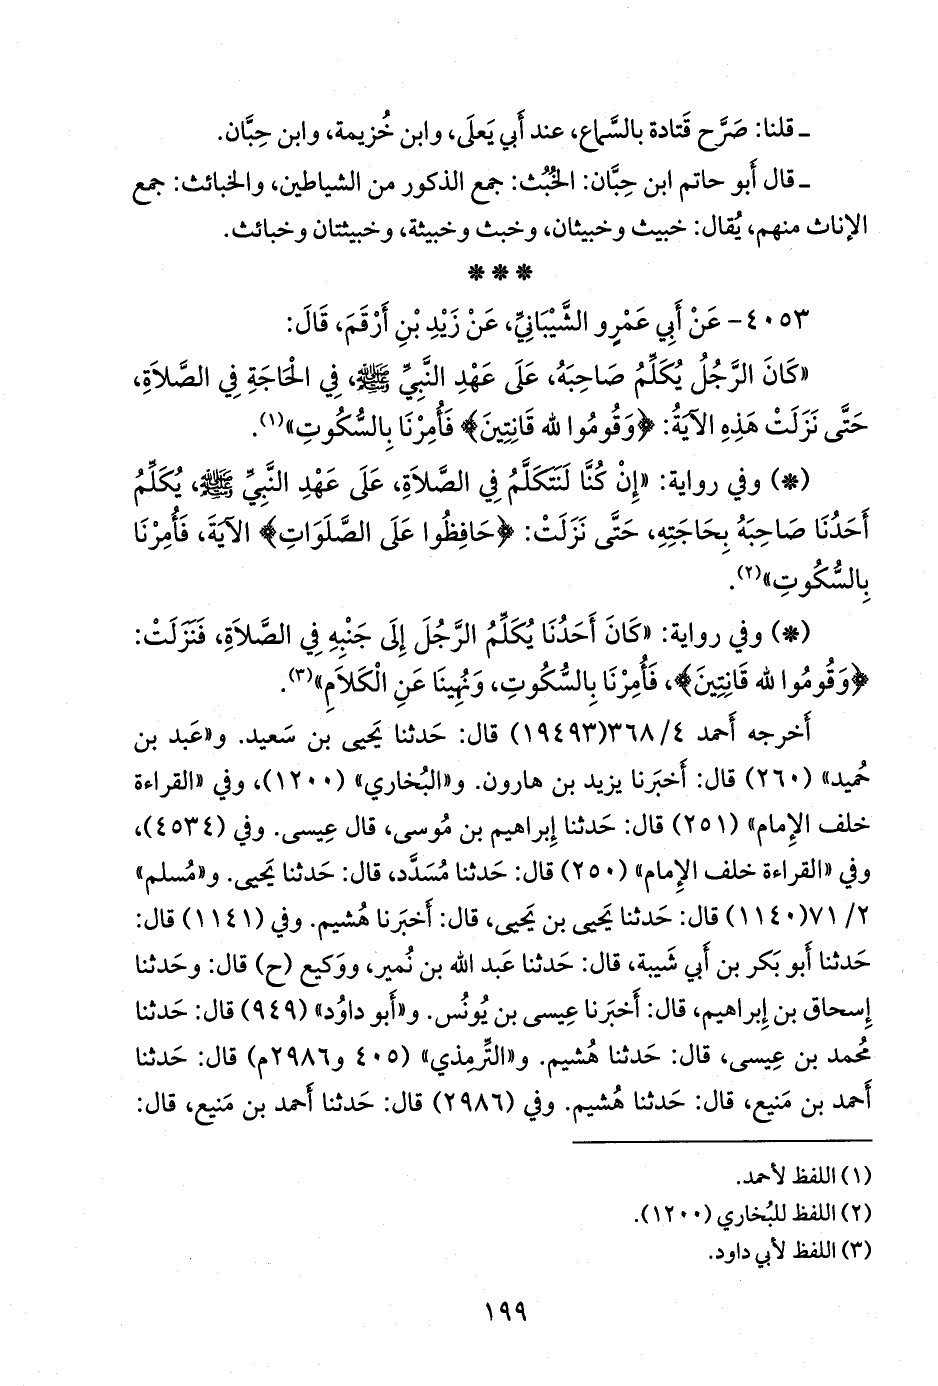 ـ قلنا: صَرَّح قَتادة بالسَّماع، عند أَبي يَعلَى، وابن خُزيمة، وابن حِبَّان.
ـ قال أَبو حاتم ابن حِبَّان: الخُبُث: جمع الذكور من الشياطين، والخبائث: جمع
الإناث منهم، يُقال: خبيث وخبيثان، وخبث وخبيثة، وخبيثتان وخبائث.
* * *
٤٠٥٣- عَنْ أَبِي عَمْرٍو الشَّيْبَانِيِّ، عَنْ زَيْدِ بْنِ أَرْقَمَ، قَالَ:
«كَانَ الرَّجُلُ يُكَلِّمُ صَاحِبَهُ، عَلَى عَهْدِ النَّبِيِّ ﷺ، فِي الْحَاجَةِ فِي الصَّلاَةِ،
حَتَّى نَزَلَتْ هَذِهِ الآيَةُ: ﴿وَقُومُوا لله قَانِتِينَ﴾ فَأُمِرْنَا بِالسُّكُوتِ»(١).
(*) وفي رواية: «إِنْ كُنَّا لَنَتَكَلَّمُ فِي الصَّلاَةِ، عَلَى عَهْدِ النَّبِيِّ ﷺ، يُكَلِّمُ
أَحَدُنَا صَاحِبَهُ بِحَاجَتِهِ، حَتَّى نَزَلَتْ: ﴿حَافِظُوا عَلَى الصَّلَوَاتِ﴾ الآيَةَ، فَأُمِرْنَا
بِالسُّكُوتِ»(٢).
(*) وفي رواية: «كَانَ أَحَدُنَا يُكَلِّمُ الرَّجُلَ إِلَى جَنْبِهِ فِي الصَّلاَةِ، فَنَزَلَتْ:
﴿وَقُومُوا لله قَانِتِينَ﴾، فَأُمِرْنَا بِالسُّكُوتِ، وَنُهِينَا عَنِ الْكَلاَمِ»(٣).
أَخرجه أَحمد ٤/ ٣٦٨(١٩٤٩٣) قال: حَدثنا يَحيى بن سَعيد. و«عَبد بن
حُميد» (٢٦٠) قال: أَخبَرنا يزيد بن هارون. و«البُخاري» (١٢٠٠)، وفي «القراءة
خلف الإِمام» (٢٥١) قال: حَدثنا إِبراهيم بن مُوسى، قال عِيسى. وفي (٤٥٣٤)،
وفي «القراءة خلف الإِمام» (٢٥٠) قال: حَدثنا مُسَدَّد، قال: حَدثنا يَحيى. و«مُسلم»
٢/ ٧١(١١٤٠) قال: حَدثنا يَحيى بن يَحيى، قال: أَخبَرنا هُشيم. وفي (١١٤١) قال:
حَدثنا أَبو بَكر بن أَبي شَيبة، قال: حَدثنا عَبد الله بن نُمير، ووَكيع (ح) قال: وحَدثنا
إِسحاق بن إِبراهيم، قال: أَخبَرنا عِيسى بن يُونُس. و«أَبو داوُد» (٩٤٩) قال: حَدثنا
مُحمد بن عِيسى، قال: حَدثنا هُشيم. و«التِّرمِذي» (٤٠٥ و٢٩٨٦م) قال: حَدثنا
أَحمد بن مَنيع، قال: حَدثنا هُشيم. وفي (٢٩٨٦) قال: حَدثنا أَحمد بن مَنيع، قال:
(١) اللفظ لأَحمد.
(٢) اللفظ للبُخاري (١٢٠٠).
(٣) اللفظ لأَبي داود.
١٩٩